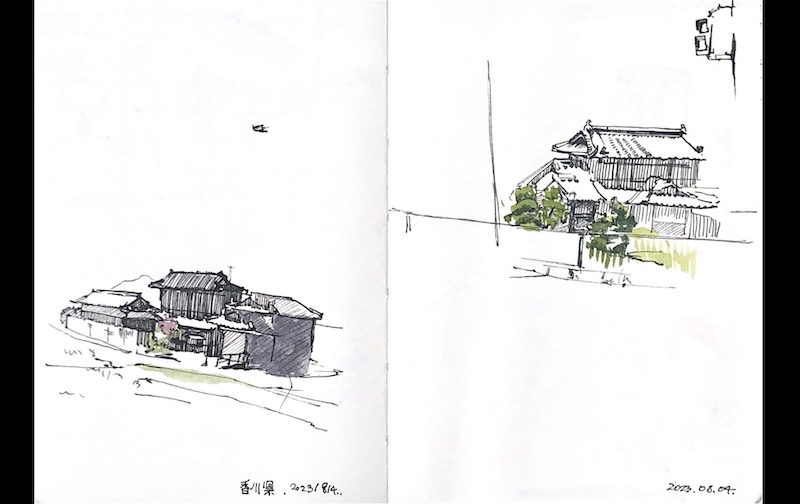 香川県. 2023/8/4..
2023.08.04.